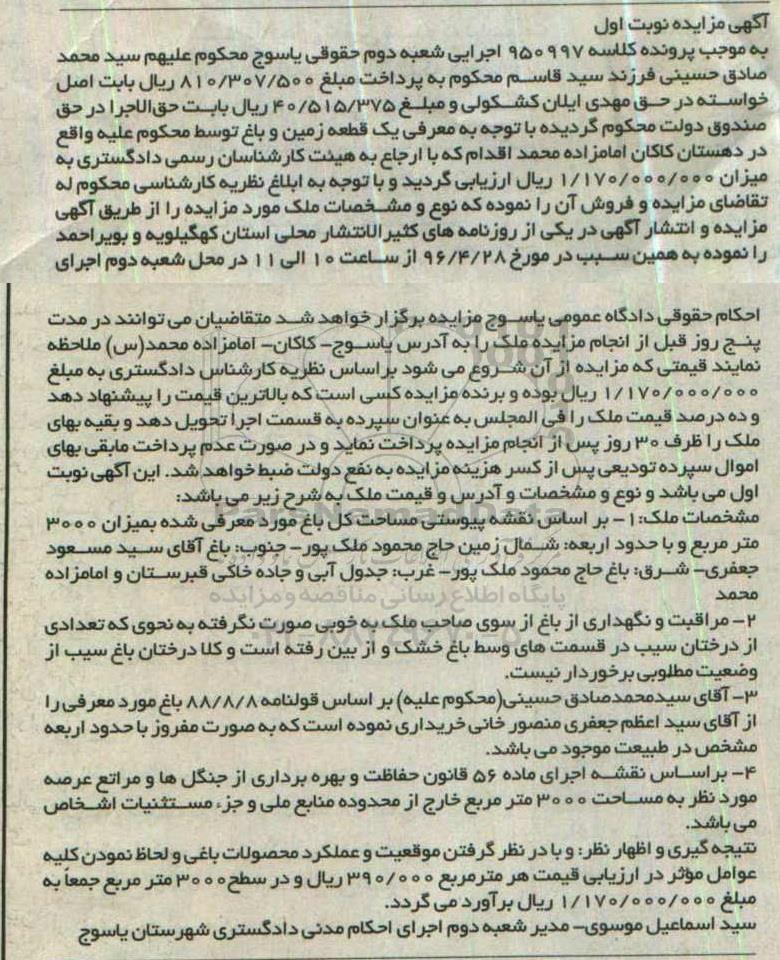 آگهی مزایده نوبت اول
به موجب پرونده کلاسه ۹۵۰۹۹۷ اجرایی شعبه دوم حقوقی یاسوج محکوم علیهم سید محمد
صادق حسینی فرزند سید قاسم محکوم به پرداخت مبلغ ۸۱۰/۳۰۷/۵۰۰ ریال بابت اصل
خواسته در حق مهدی ایلان کشکولی و مبلغ ۴۰/۵۱۵/۳۷۵ ریال بابت حق‌الاجرا در حق
صندوق دولت محکوم گردیده با توجه به معرفی یک قطعه زمین و باغ توسط محکوم علیه واقع
در دهستان کاکان امامزاده محمد اقدام که با ارجاع به هیئت کارشناسان رسمی دادگستری به
میزان ۱/۱۷۰/۰۰۰/۰۰۰ ریال ارزیابی گردید و با توجه به ابلاغ نظریه کارشناسی محکوم له
تقاضای مزایده و فروش آن را نموده که نوع و مشخصات ملک مورد مزایده را از طریق آگهی
مزایده و انتشار آگهی در یکی از روزنامه های کثیرالانتشار محلی استان کهگیلویه و بویراحمد
را نموده به همین سبب در مورخ ۹۶/۴/۲۸ از ساعت ۱۰ الی ۱۱ در محل شعبه دوم اجرای
احکام حقوقی دادگاه عمومی یاسوج مزایده برگزار خواهد شد متقاضیان می توانند در مدت
پنج روز قبل از انجام مزایده ملک را به آدرس یاسوج- کاکان- امامزاده محمد(س) ملاحظه
نمایند قیمتی که مزایده از آن شروع می شود براساس نظریه کارشناس دادگستری به مبلغ
۱/۱۷۰/۰۰۰/۰۰۰ ریال بوده و برنده مزایده کسی است که بالاترین قیمت را پیشنهاد دهد
و ده درصد قیمت ملک را فی المجلس به عنوان سپرده به قسمت اجرا تحویل دهد و بقیه بهای
ملک را ظرف ۳۰ روز پس از انجام مزایده پرداخت نماید و در صورت عدم پرداخت مابقی بهای
اموال سپرده تودیعی پس از کسر هزینه مزایده به نفع دولت ضبط خواهد شد. این آگهی نوبت
اول می باشد و نوع و مشخصات و آدرس و قیمت ملک به شرح زیر می باشد:
مشخصات ملک: ۱- بر اساس نقشه پیوستی مساحت کل باغ مورد معرفی شده بمیزان ۳۰۰۰
متر مربع و با حدود اربعه: شمال زمین حاج محمود ملک پور- جنوب: باغ آقای سید مسعود
جعفری- شرق: باغ حاج محمود ملک پور- غرب: جدول آبی و جاده خاکی قبرستان و امامزاده
محمد
۲- مراقبت و نگهداری از باغ از سوی صاحب ملک به خوبی صورت نگرفته به نحوی که تعدادی
از درختان سیب در قسمت های وسط باغ خشک و از بین رفته است و کلا درختان باغ سیب از
وضعیت مطلوبی برخوردار نیست.
۳- آقای سیدمحمدصادق حسینی(محکوم علیه) بر اساس قولنامه ۸۸/۸/۸ باغ مورد معرفی را
از آقای سید اعظم جعفری منصور خانی خریداری نموده است که به صورت مفروز با حدود اربعه
مشخص در طبیعت موجود می باشد.
۴- براساس نقشه اجرای ماده ۵۶ قانون حفاظت و بهره برداری از جنگل ها و مراتع عرصه
مورد نظر به مساحت ۳۰۰۰ متر مربع خارج از محدوده منابع ملی و جزء مستثنیات اشخاص
می باشد.
نتیجه گیری و اظهار نظر: و با در نظر گرفتن موقعیت و عملکرد محصولات باغی و لحاظ نمودن کلیه
عوامل مؤثر در ارزیابی قیمت هر مترمربع ۳۹۰/۰۰۰ ریال و در سطح ۳۰۰۰ متر مربع جمعاً به
مبلغ ۱/۱۷۰/۰۰۰/۰۰۰ ریال برآورد می گردد.
سید اسماعیل موسوی- مدیر شعبه دوم اجرای احکام مدنی دادگستری شهرستان یاسوج
ParsNamadData
پایگاه اطلاع رسانی مناقصه و مزایده